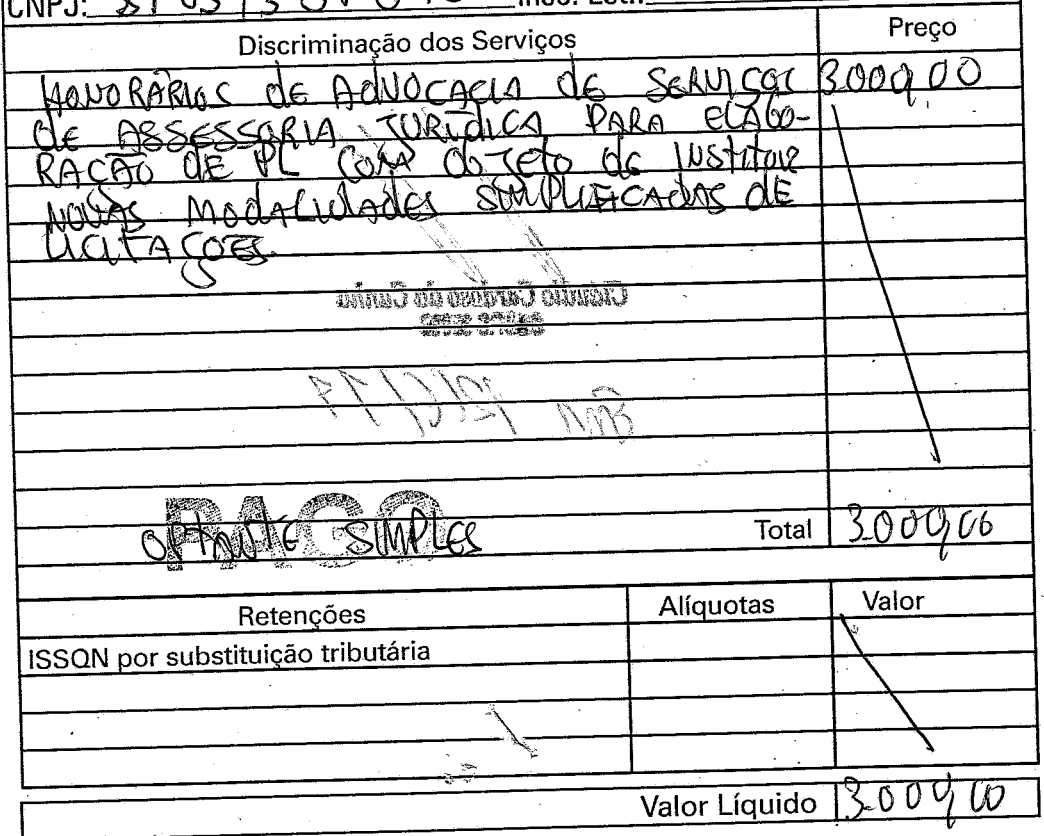 CNPJ:
Discriminação dos Serviços Preço
HONORÁRIOS DE ADVOCACIA DE SERVIÇOS 3.000,00
DE ASSESSORIA JURÍDICA PARA ELABO-
RAÇÃO DE PL COM OBJETO DE INSTITUIR
NOVAS MODALIDADES SIMPLIFICADAS DE
LICITAÇÕES.
PAGO
OPTANTE SIMPLES Total 3.000,00
Retenções Alíquotas Valor
ISSQN por substituição tributária
Valor Líquido 3.000,00